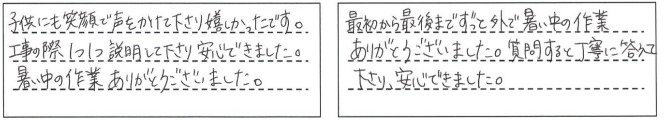 子供にも笑顔で声をかけて下さり嬉しかったです。
工事の際1つ1つ説明して下さり安心できました。
暑い中の作業ありがとうございました。
最初から最後までずっと外で暑い中の作業
ありがとうございました。質問すると丁寧に答えて
下さり、安心できました。